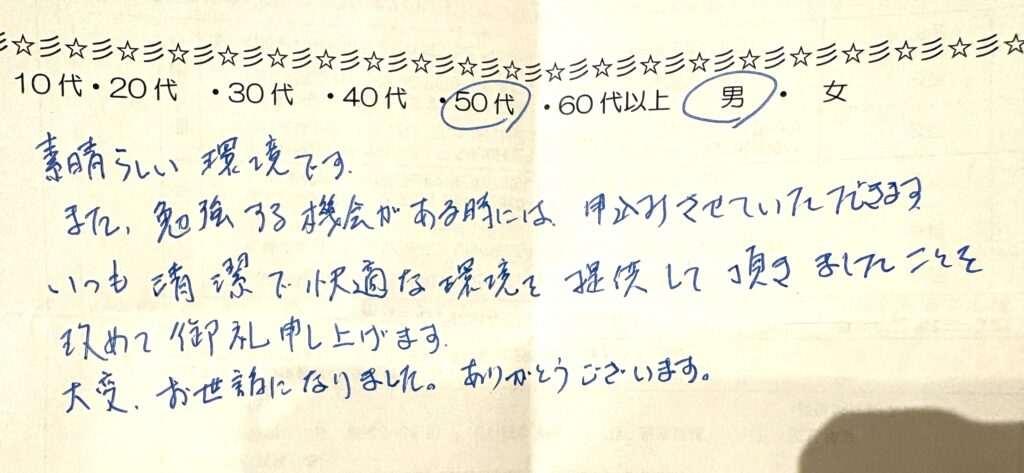 彡☆彡☆彡☆彡☆彡☆彡☆彡☆彡☆彡☆彡☆彡☆彡☆彡☆彡☆彡☆彡☆彡☆彡☆彡☆
10代・20代 ・30代 ・40代 ・50代 ・60代以上 男 ・ 女
素晴らしい環境です。
また、勉強する機会がある時には、申込みさせていただきます
いつも清潔で快適な環境を提供して頂きましたことを
改めて御礼申し上げます。
大変、お世話になりました。ありがとうございます。